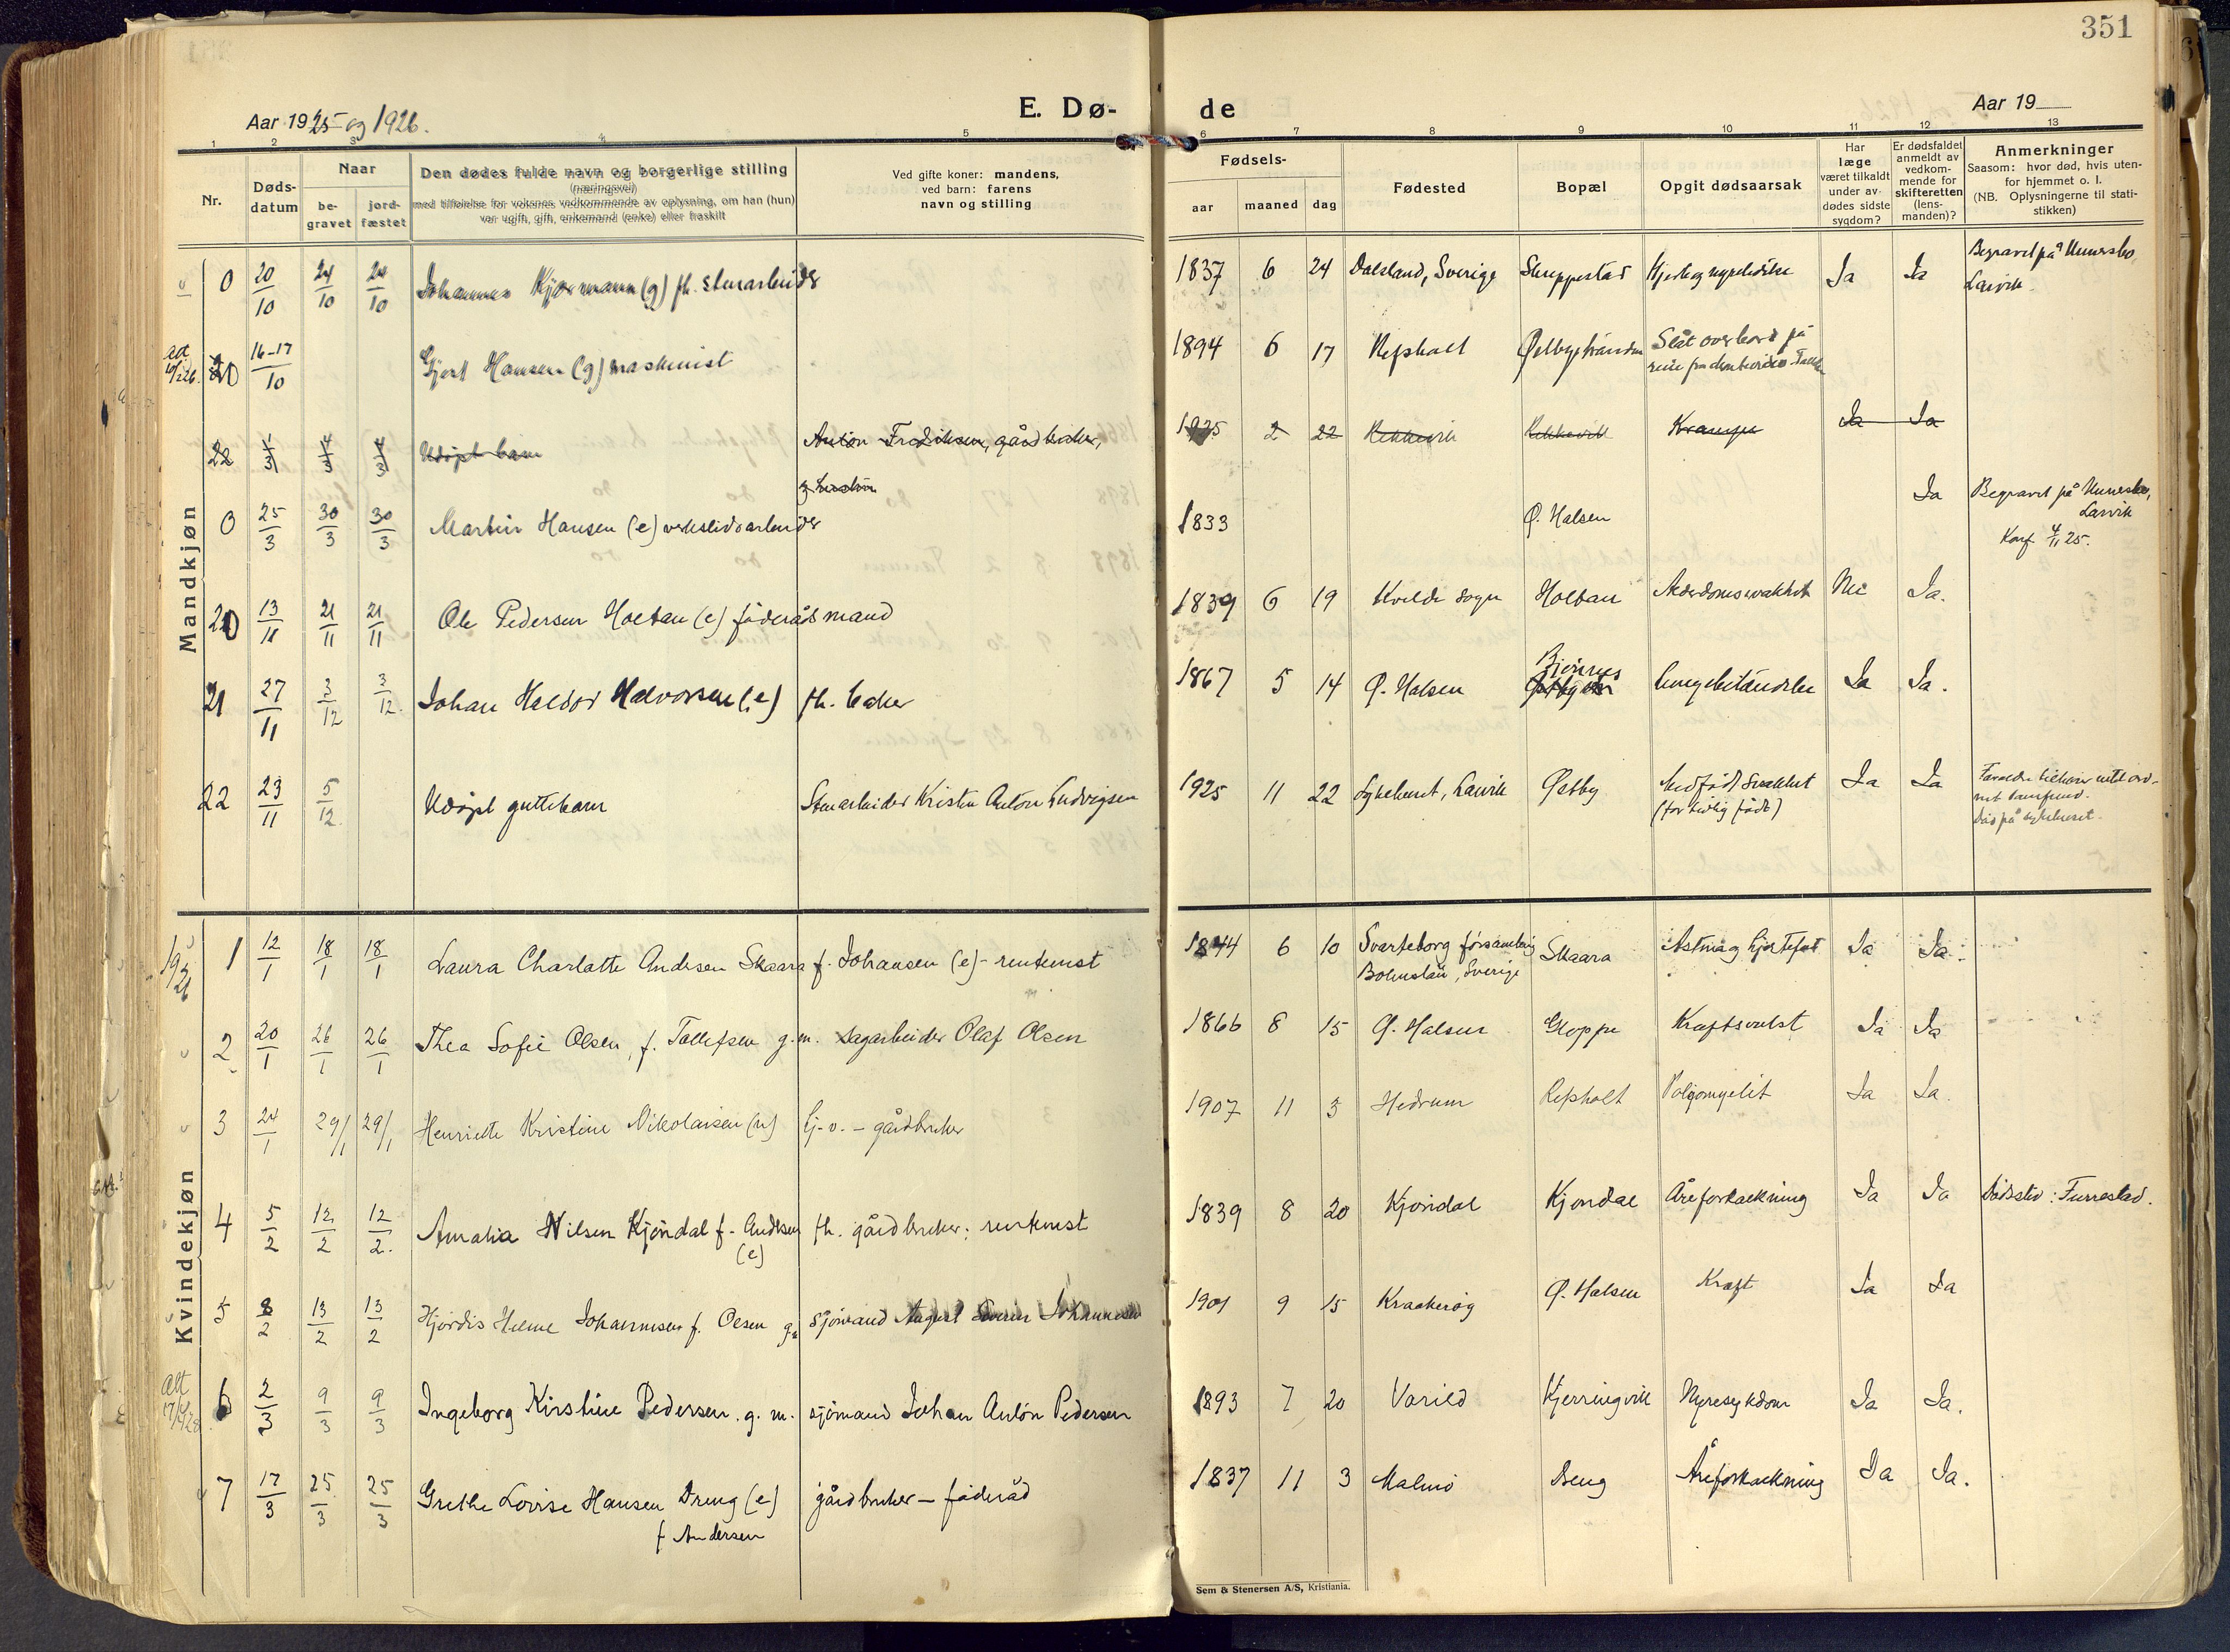 351
Aar 1925 og 1926.
E. Dø-
de
Aar 19
1 2 3 4 5 6 7 8 9 10 11 12 13
Nr.
Døds-
datum
Naar
be-
gravet
jord-
fæstet
Den dødes fulde navn og borgerlige stilling
(næringsvei)
med tilføielse for voksnes vedkommende av oplysning, om han (hun)
var ugift, gift, enkemand (enke) eller fraskilt
Ved gifte koner: mandens,
ved barn: farens
navn og stilling
Fødsels-
aar maaned dag
Fødested
Bopæl
Opgit dødsaarsak
Har
læge
været tilkaldt
under av-
dødes sidste
sygdom?
Er dødsfaldet
anmeldt av
vedkom-
mende for
skifteretten
(lens-
manden)?
Anmerkninger
Saasom: hvor død, hvis uten-
for hjemmet o. l.
(NB. Oplysningerne til stati-
stikken)
Mandkjøn
0 20/10 24/10 24/10 Johannes Kjærmann (g) fh. stenarbeider 1837 6 24 Dalsland, Sverige Skreppestad Hjerte og nyrelidelse Ja Ja Begravet på Undersbo, Larvik.
16-17/10 Gjert Hansen (g) maskinist 1894 6 17 Refsholt Østbystranden Slåt overbord på
22 1/3 4/3 4/3 Udøpt barn Anton Fredriksen, gårdbruker, 1925 2 22 Rekkevik Rekkevik Krampe Ja Ja
0 25/3 30/3 30/3 Martin Hansen (e) verkstedsarbeider 1833 Ø. Halsen Ja Begravet på Undersbo,
Larvik
Konf. 4/11 25.
20 13/11 21/11 21/11 Ole Pedersen Holtan (e) føderådsmand 1839 6 19 Kvelde sogn Holtan Alderdomssvakhet Nei Ja.
21 27/11 3/12 3/12. Johan Haldor Halvorsen (e) fh. baker 1867 5 14 Ø. Halsen Bjønnes Lungebetændelse Ja Ja.
22 23/11 5/12. Udøpt guttebarn Stenarbeider Kristen Anton Ludvigsen 1925 11 22 Sykehuset, Larvik Østby Medfødt svakhet Ja Ja
(for tidlig født)
Død på sykehuset.
Kvindekjøn
1 12/1 18/1 18/1 Laura Charlatte Andersen Skaara f. Johansen (e) - rentenist 1844 6 10 Svarteborg församling Skaara Astma og hjertefeil Ja Ja.
Bohuslän, Sverige
2 20/1 26/1 26/1 Thea Sofie Olsen, f. Tollefsen g. m. sagarbeider Olaf Olsen 1866 8 15 Ø. Halsen Gloppe Kræftsvulst Ja Ja
3 24/1 29/1 29/1 Henriette Kristine Nikolaisen (u) hj. v. - gårdbruker 1907 11 3 Hedrum Refsholt Polyomyelit Ja Ja.
4 5/2 12/2 12/2. Amalia Nilsen Kjøndal f. Andersen fh. gårdbruker; rentenist 1839 8 20 Kjøndal Kjøndal Åreforkalkning Ja Ja Dødssted: Furrestad.
(e)
5 8/2 13/2 13/2 Hjørdis Helene Johannesen f. Olsen gm sjømand August Severin Johannesen 1901 9 15 Kraakerøg Ø. Halsen Kræft Ja Ja
6 2/3 9/3 9/3 Ingeborg Kirstine Pedersen. g. m. sjømand Johan Anton Pedersen 1893 7 20 Varild Kjerringvik Nyresykdom Ja Ja.
7 17/3 25/3 25/3 Grethe Lovise Hansen Dreng (e) gårdbruker - føderåd 1837 11 3 Malmø Dreng Åreforkalkning Ja Ja.
f. Andersen
Sem & Stenersen A/S, Kristiania.